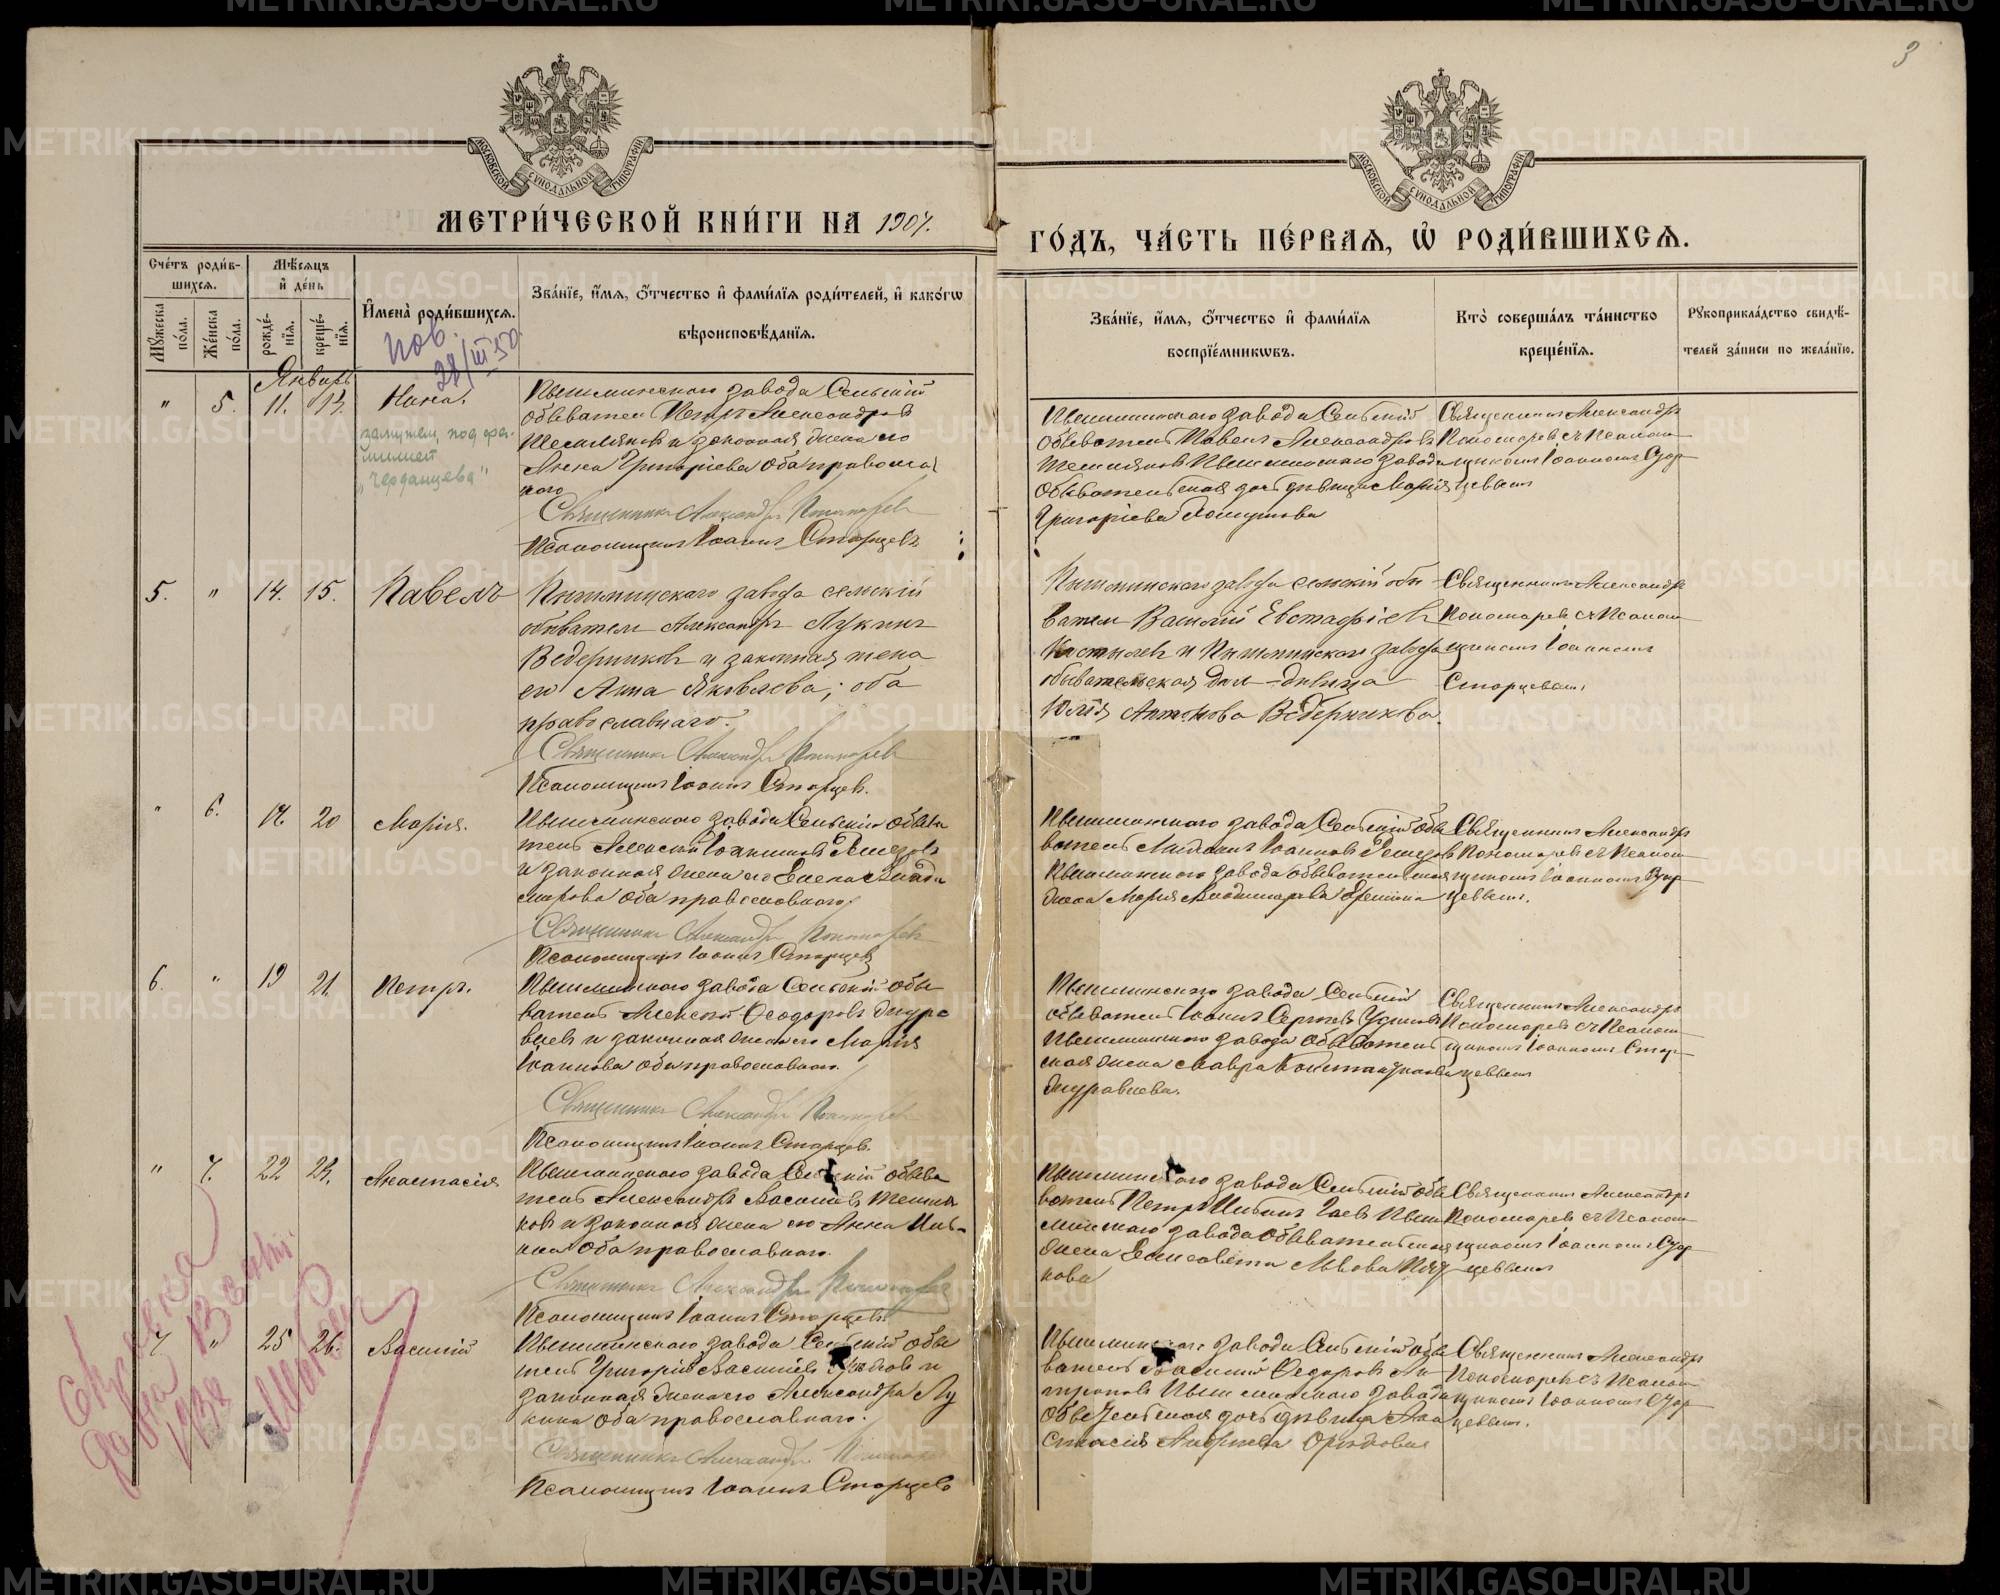 3
МЕТРИ́ЧЕСКОЙ КНИ́ГИ НА 1907.
ГО́ДЪ, ЧА́СТЬ ПЕ́РВАЯ, Ѡ РОДИ́ВШИХСЯ.
Сче́тъ роди́в-
шихся.
Мѣ́сяцъ
и де́нь
Мꙋжеска по́ла.
Же́нска по́ла.
рожде́-нїя.
креще́-нїя.
И҆мена̀ роди́вшихся.
Зва́нїе, и҆́мя, о҆́тчество и҆ фами́лїя роди́телей, и҆ како́гѡ
вѣроисповѣ́данїя.
Зва́нїе, и҆́мя, о҆́тчество и҆ фами́лїя
воспрїе́мникѡвъ.
Кто̀ соверша́лъ та́инство
креще́нїя.
Рꙋкоприкла́дство свидѣ́-
телей за́писи по жела́нїю.
пов.
28/III 50
Январь
" 5. 11. 13. Нина.
замужем, под фа-
милией
"Черданцева"
Пышминскаго завода Сельскій
обыватель Петръ Александровъ
и законная жена его
Анна Григорьева оба православ
наго
Священникъ Александръ Пономаревъ
Псаломщикъ Іоаннъ Старцевъ
Пышминскаго завода Сельскій
обыватель Павелъ Александровъ
Пышминскаго завода
обывательская дочь дѣвица Марія
Григорьева Хомутова
Священникъ Александръ
Пономаревъ съ Псалом
щикомъ Іоанномъ Стар
цевымъ
5. " 14. 15. Павелъ
Пышминскаго завода сельскій
обыватель Александръ Лукинъ
Ведерниковъ и законная жена
его Анна Яковлева; оба
православнаго.
Священникъ Александръ Пономаревъ
Псаломщикъ Іоаннъ Старцев.
Пышминскаго завода сельскій обы
ватель Василій Евстафіевъ
Костылевъ и Пышминскаго завода
обывательская дочь-дѣвица
Юлія Антонова Ведерникова.
Священникъ Александръ
Пономаревъ съ Псалом
щикомъ Іоанномъ
Старцевымъ
" 6. 17. 20 Марія.
Пышминскаго завода Сельскій обыва
тель Алексѣй Іоакимовъ
и законная жена его Елена Влади
мирова оба православнаго.
Священникъ Александръ Пономаревъ
Псаломщикъ Іоаннъ Старцевъ
Пышминскаго завода Сельскій обы
ватель Іоанновъ
Пышминскаго завода обывательская
жена Марія Владимирова
Священникъ Александръ
Пономаревъ съ Псалом
щикомъ Іоанномъ Стар
цевымъ.
6. " 19 21. Петръ.
Пышминскаго завода Сельскій обы
ватель Алексѣй Ѳеодоровъ Журав
влевъ и законная жена его Марія
Іоаннова оба православнаго.
Священникъ Александръ Пономаревъ
Псаломщикъ Іоаннъ Старцев.
Пышминскаго завода Сельскій
обыватель Іоаннъ Сергѣевъ
Пышминскаго завода обыватель
ская жена Мавра Константинова
Журавлева.
Священникъ Александръ
Пономаревъ съ Псалом
щикомъ Іоанномъ Стар
цевымъ
" 7. 22 23. Анастасія
Пышминскаго завода Сельскій обыва
тель Александръ Васильевъ
и законная жена его Анна Иль-
ина оба православнаго.
Священникъ Александръ Пономаревъ
Псаломщикъ Іоаннъ Старцевъ
Пышминскаго завода Сельскій обы
ватель Петръ Пыш
минскаго завода обывательская
жена Елисавета Львова
кова
Священникъ Александръ
Пономаревъ съ Псалом
щикомъ Іоанномъ Стар
цевымъ
7 " 25 26. Василій
Пышминскаго завода Сельскій обыва
тель Григорій Васильевъ и
законная жена его Александра Лу
кина оба православнаго.
Священникъ Александръ Пономаревъ
Псаломщикъ Іоаннъ Старцевъ
Пышминскаго завода Сельскій обы
ватель Василій Ѳедоровъ
Пышминскаго завода
дочь дѣвица Ана
стасія
Священникъ Александръ
Пономаревъ съ Псалом
щикомъ Іоанномъ Стар
цевымъ.
Справка
дана
1938
METRIKI.GASO-URAL.RU